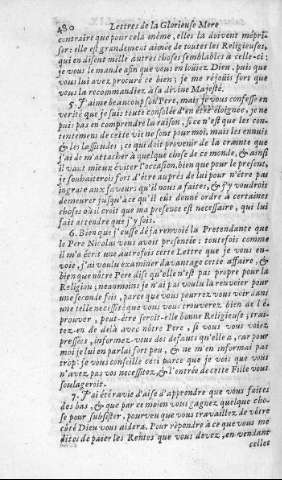 480 Lettres de la Glorieuse Mere
contraire que pour cela même, elles la doivent mépri-
ser: elle est grandement aimée de toutes les Religieuses,
qui en disent mille autres choses semblables à celle-ci;
je vous le mande afin que vous en loüiez Dieu, puis que
vous lui avez procuré ce bien; je me réjoüis fort que
vous la recommandiez à sa divine Majesté.
5. J'aime beaucoup son Pere, mais je vous confesse en
verité que je suis toute consolée d'en être éloignée, je ne
puis pas en comprendre la raison, si ce n'est que les con-
tentemens de cette vie ne sont pour moi, mais les ennuis
& les lassitudes; ce qui doit provenir de la crainte que
j'ai de m'attacher à quelque chose de ce monde, & ainsi
il vaut mieux éviter l'occasion, bien que pour le present,
je souhaiterois fort d'être auprés de lui pour n'être pas
ingrate aux faveurs qu'il nous a faites, & j'y voudrois
demeurer jusqu'à ce qu'il eût donné ordre à certaines
choses où il croit que ma presence est necessaire, qui lui
fait attendre que j'y sois.
6. Bien que j'eusse déja renvoié la Pretendante que
le Pere Nicolai vous avoit presentée: toutefois comme
il m'a écrit une autrefois cette Lettre que je vous en-
voie, j'ai voulu examiner davantage cette affaire, &
bien que nôtre Pere dise qu'elle n'est pas propre pour la
Religion; neaumoins je n'ai pas voulu la renvoier pour
une seconde fois, parce que vous pourrez vous voir dans
une telle necessité que vous vous trouverez bien de l'é-
prouver, peut-être seroit-elle bonne Religieuse; trai-
tez-en de delà avec nôtre Pere, si vous vous voiez
pressées, informez-vous des defauts qu'elle a, car pour
moi je lui en parlai fort peu, & ne m'en informai pas
trop: je vous conseille cela parce que je voi que vous
n'avez pas vos necessitez, & l'entrée de cette Fille vous
soulageroit.
7. J'ai été ravie d'aise d'apprendre que vous faites
des bas, & que par ce moien vous gagnez quelque cho-
se pour subsister, pourveu que vous travailliez de vôtre
côté Dieu vous aidera. Pour répondre à ce que vous me
dites de paier les Rentes que vous devez, en vendant
celles